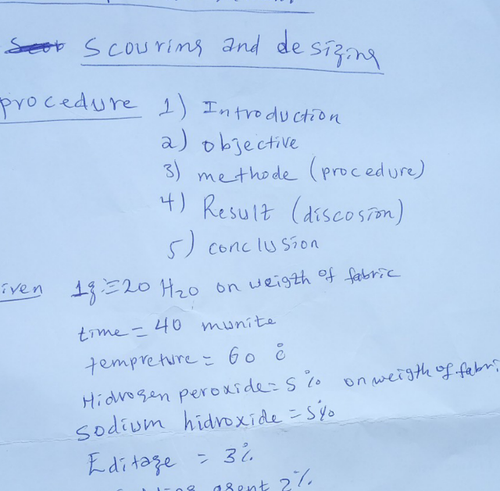 Scouring and desizing
procedure 1) Introduction
2) objective
3) methode (procedure)
4) Result (discosion)
5) conclusion
iven 1g=20 H2O on weigth of fabric
time = 40 munite
tempreture = 60 °c
Hidrogen peroxide = 5% on weigth of fabri
sodium hidroxide = 5%
Editage = 3%
agent 2%